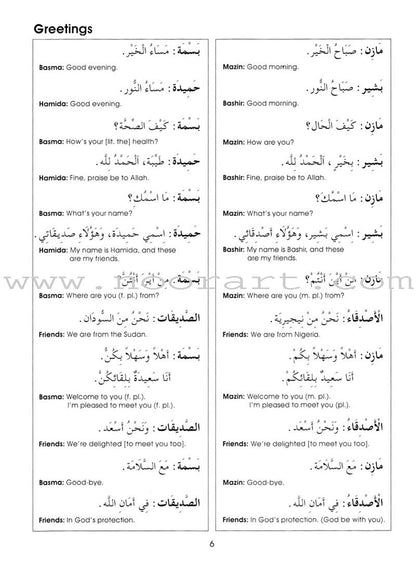 Greetings
مَازِن : صَبَاحُ الْخَيْر.
Mazin: Good morning.
بَشِير : صَبَاحُ النُّور.
Bashir: Good morning.
مَازِن : كَيْفَ الْحَال؟
Mazin: How are you?
بَشِير : بِخَيْرٍ ، اَلْحَمْدُ للَّه.
Bashir: Fine, praise be to Allah.
مَازِن : مَا اسْمُكَ؟
Mazin: What's your name?
بَشِير : اِسْمِي بَشِير، وَهَؤُلَاءِ أَصْدِقَائِي.
Bashir: My name is Bashir, and these
are my friends.
مَازِن : مِنْ أَيْنَ أَنْتُمْ؟
Mazin: Where are you (m. pl.) from?
الْأَصْدِقَاءُ : نَحْنُ مِنْ نَيْجِيرِيَة.
Friends: We are from Nigeria.
مَازِن : أَهْلًا وَسَهْلًا بِكُمْ.
أَنَا سَعِيدٌ بِلِقَائِكُمْ.
Mazin: Welcome to you (m. pl.)
I'm pleased to meet you (m. pl.).
الْأَصْدِقَاءُ : وَنَحْنُ أَسْعَد.
Friends: We're delighted [to meet you too].
مَازِن : مَعَ السَّلَامَة.
Mazin: Good-bye.
الْأَصْدِقَاءُ : فِي أَمَانِ اللَّه.
Friends: In God's protection. (God be with you).
بَسْمَة : مَسَاءُ الْخَيْر.
Basma: Good evening.
حَمِيدَة : مَسَاءُ النُّور.
Hamida: Good evening.
بَسْمَة : كَيْفَ الصِّحَّة؟
Basma: How's your [lit. the] health?
حَمِيدَة : طَيِّبَة، اَلْحَمْدُ للَّه.
Hamida: Fine, praise be to Allah.
بَسْمَة : مَا اسْمُكِ؟
Basma: What's your name?
حَمِيدَة : اِسْمِي حَمِيدَة، وَهَؤُلَاءِ صَدِيقَاتِي.
Hamida: My name is Hamida, and these
are my friends.
بَسْمَة : مِنْ أَيْنَ أَنْتُنَّ؟
Basma: Where are you (f. pl.) from?
الصَّدِيقَات : نَحْنُ مِنَ السُّودَان.
Friends: We are from the Sudan.
بَسْمَة : أَهْلًا وَسَهْلًا بِكُنَّ.
أَنَا سَعِيدَةٌ بِلِقَائِكُنَّ.
Basma: Welcome to you (f. pl.)
I'm pleased to meet you (f. pl.).
الصَّدِيقَات : وَنَحْنُ أَسْعَد.
Friends: We're delighted [to meet you too].
بَسْمَة : مَعَ السَّلَامَة.
Basma: Good-bye.
الصَّدِيقَات : فِي أَمَانِ اللَّه.
Friends: In God's protection.
6